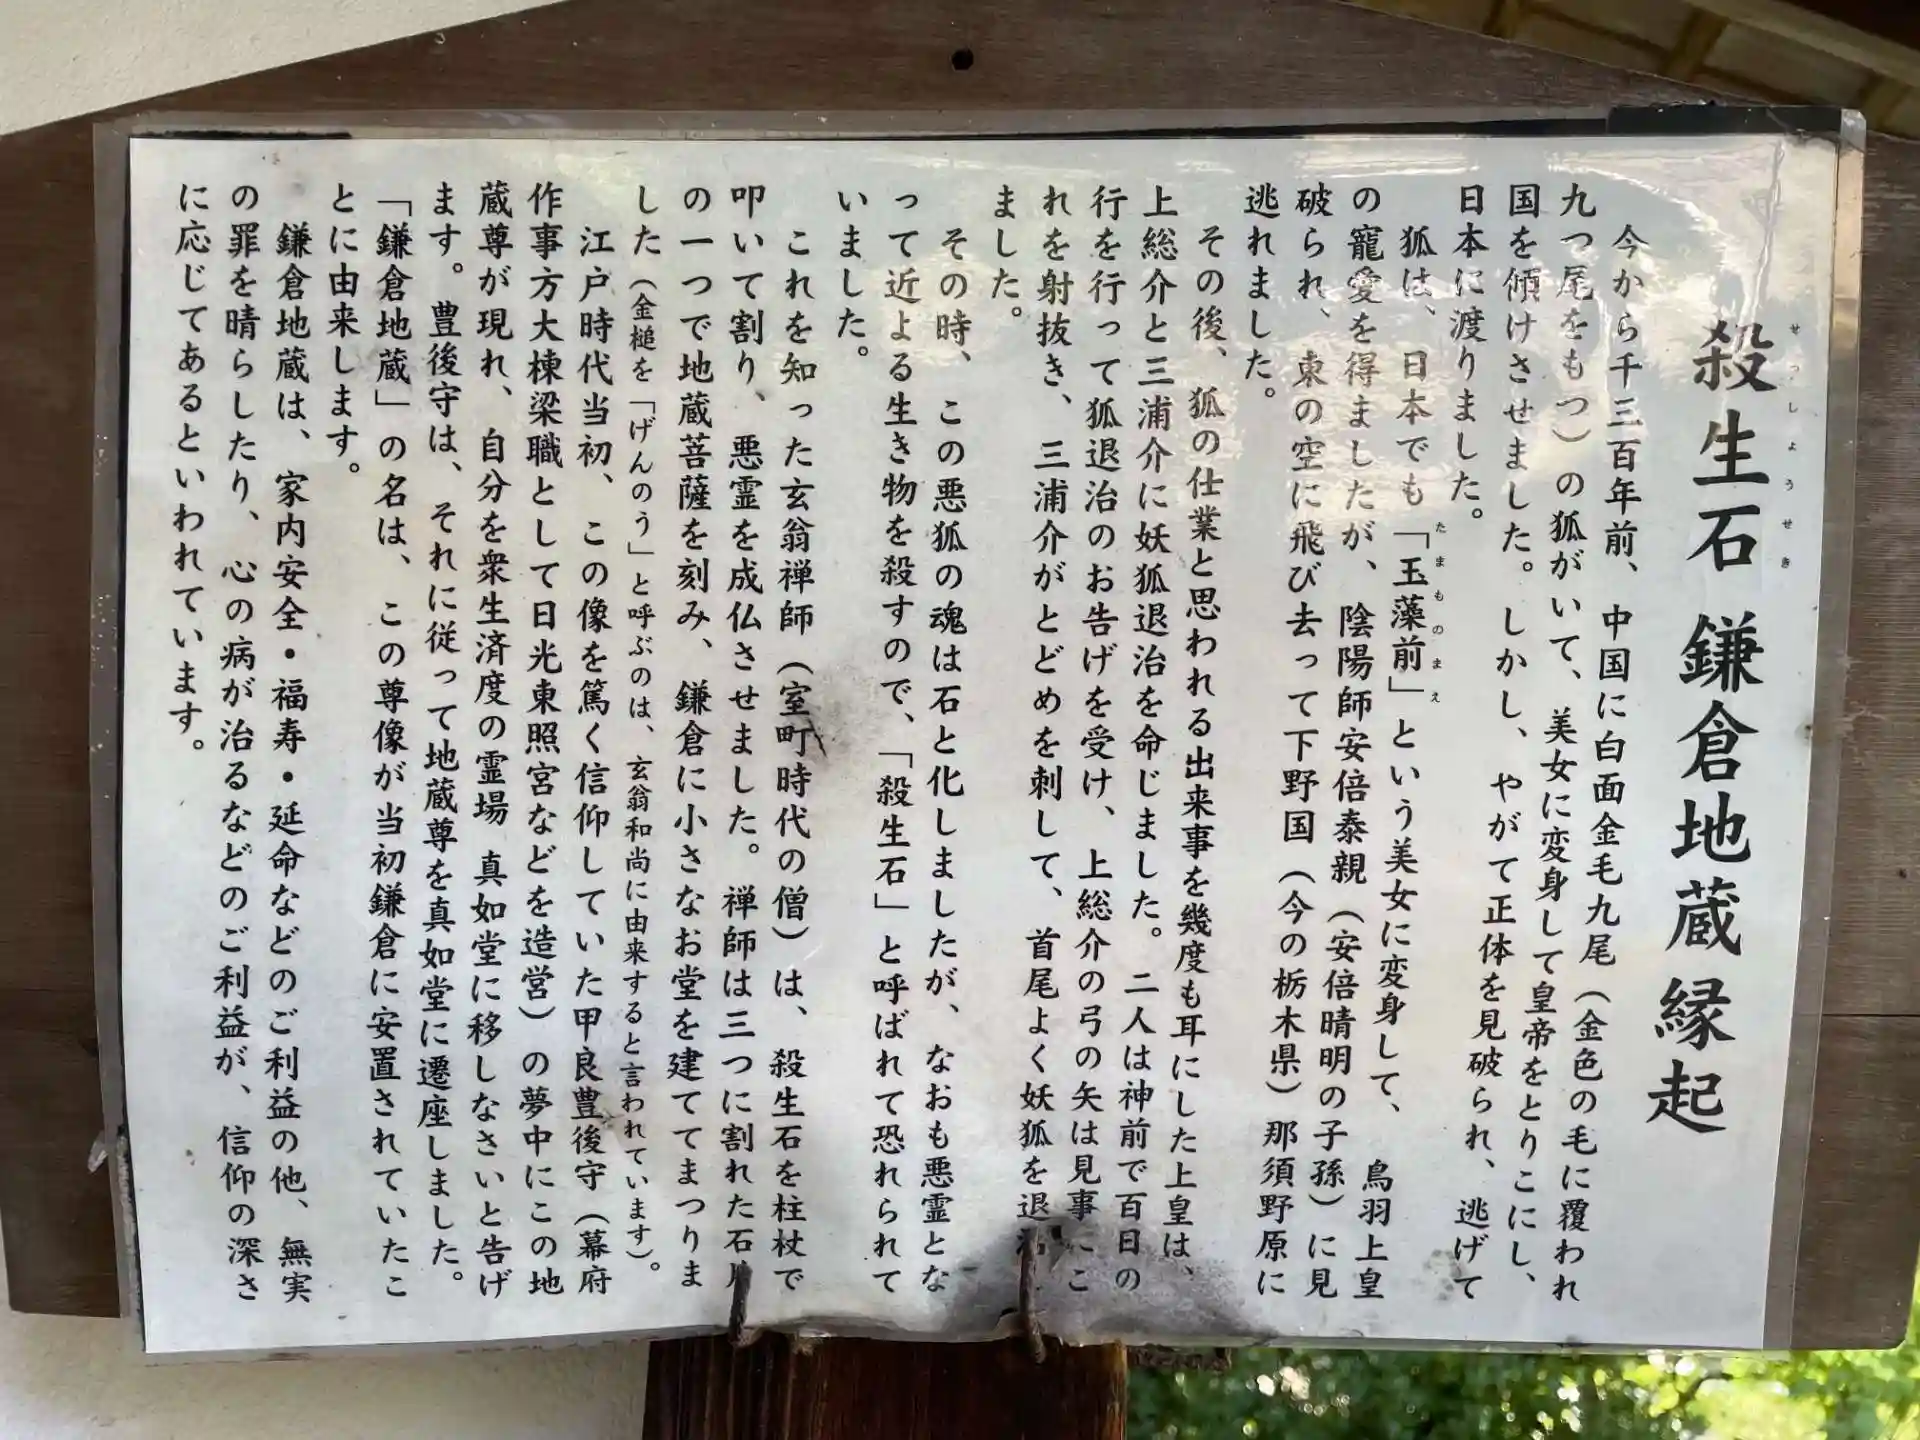 殺生石 鎌倉地蔵縁起
せっしょうせき
今から千三百年前、中国に白面金毛九尾（金色の毛に覆われ
九つ尾をもつ）の狐がいて、美女に変身して皇帝をとりこにし、
国を傾けさせました。しかし、やがて正体を見破られ、逃げて
日本に渡りました。
狐は、日本でも「玉藻前」という美女に変身して、鳥羽上皇
たまものまえ
の寵愛を得ましたが、陰陽師安倍泰親（安倍晴明の子孫）に見
破られ、東の空に飛び去って下野国（今の栃木県）那須野原に
逃れました。
その後、狐の仕業と思われる出来事を幾度も耳にした上皇は、
上総介と三浦介に妖狐退治を命じました。二人は神前で百日の
行を行って狐退治のお告げを受け、上総介の弓の矢は見事にこ
れを射抜き、三浦介がとどめを刺して、首尾よく妖狐を退
ました。
その時、この悪狐の魂は石と化しましたが、なおも悪霊とな
って近よる生き物を殺すので、「殺生石」と呼ばれて恐れられて
いました。
これを知った玄翁禅師（室町時代の僧）は、殺生石を柱杖で
叩いて割り、悪霊を成仏させました。禅師は三つに割れた石片
の一つで地蔵菩薩を刻み、鎌倉に小さなお堂を建ててまつりま
した（金槌を「げんのう」と呼ぶのは、玄翁和尚に由来すると言われています）。
江戸時代当初、この像を篤く信仰していた甲良豊後守（幕府
作事方大棟梁職として日光東照宮などを造営）の夢中にこの地
蔵尊が現れ、自分を衆生済度の霊場 真如堂に移しなさいと告げ
ます。豊後守は、それに従って地蔵尊を真如堂に遷座しました。
「鎌倉地蔵」の名は、この尊像が当初鎌倉に安置されていたこ
とに由来します。
鎌倉地蔵は、家内安全・福寿・延命などのご利益の他、無実
の罪を晴らしたり、心の病が治るなどのご利益が、信仰の深さ
に応じてあるといわれています。